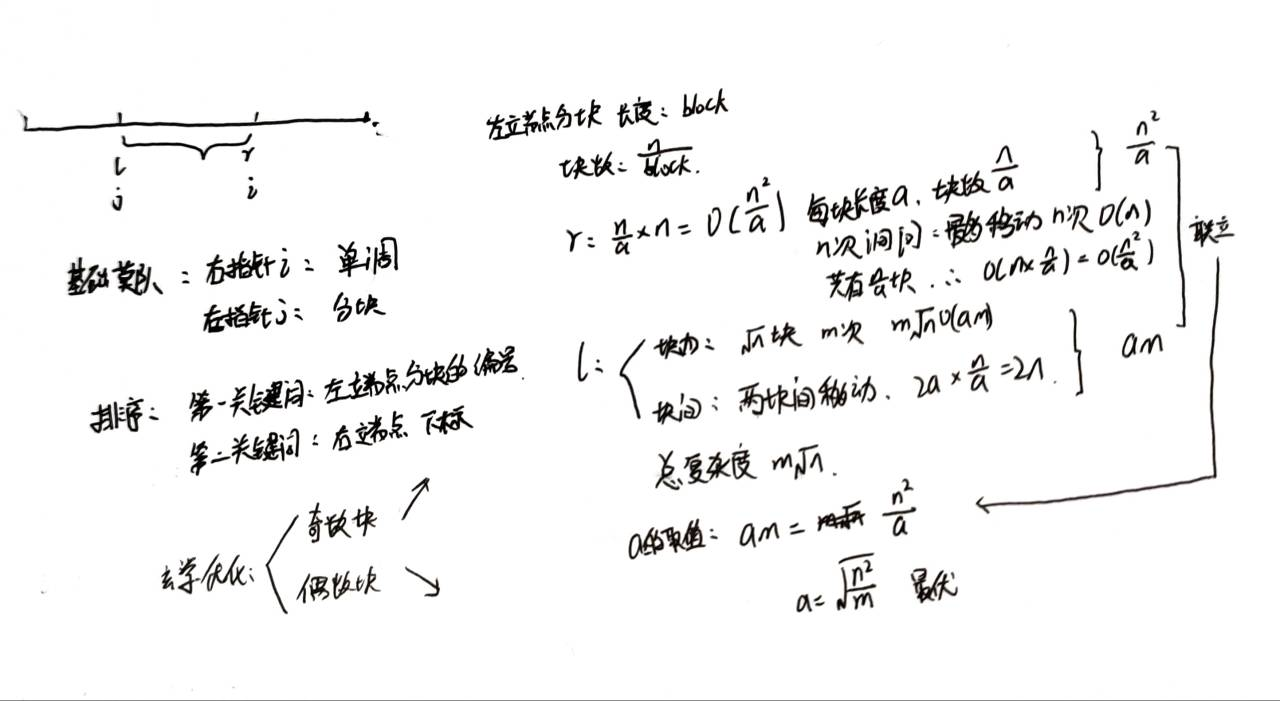 l r
j i
基础莫队：右指针i：单调
左指针j：分块
排序：第一关键词：左立端点分块的编号.
第二关键词：右立端点 下标
玄学优化：
奇数块 ↗
偶数块 ↘
左立端点分块 长度：block
块数：n/block.
r：n/a×n=O(n²/a)
每块长度a，块数n/a } n²/a
n次询问：最多移动n次O(n)
共有n/a块 ∴ O(n×n/a)=O(n²/a)
联立
l：
块内：√n块 m次 m√n O(am)
块间：两块间移动. 2a×n/a=2n.
} am
总复杂度 m√n.
a的取值：am= n²/a
a=√(n²/m) 最优